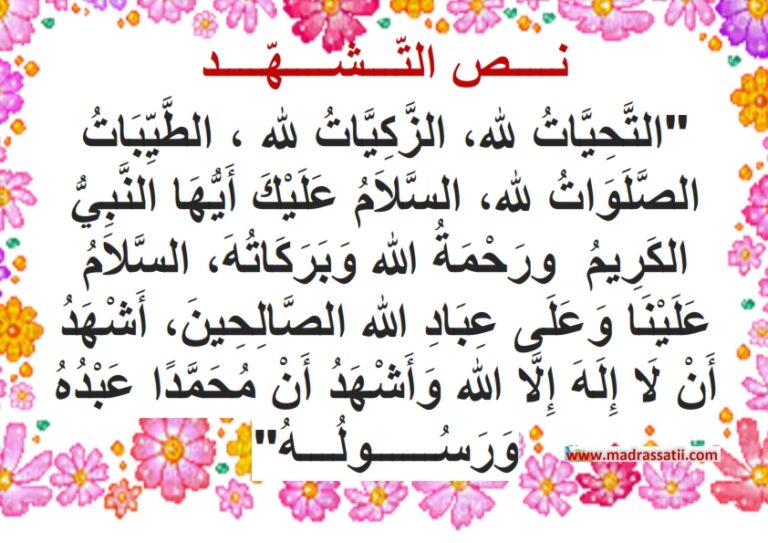 نـــص التّـــشـــهّـــد
"التَّحِيَّاتُ لله، الزَّكِيَّاتُ لله ، الطَّيِّبَاتُ
الصَّلَوَاتُ لله، السَّلاَمُ عَلَيْكَ أَيُّهَا النَّبِيُّ
الكَرِيمُ ورَحْمَةُ الله وَبَرَكَاتُهَ، السَّلاَمُ
عَلَيْنَا وَعَلَى عِبَادِ الله الصَّالِحِينَ، أَشْهَدُ
أَنْ لَا إِلَهَ إِلَّا الله وَأَشْهَدُ أَنْ مُحَمَّدًا عَبْدُهُ
وَرَسُـــولُـــهُ"
www.madrassatii.com